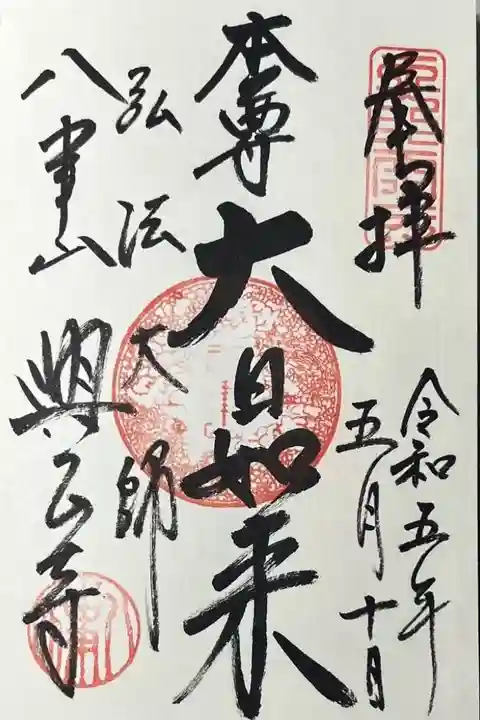 奉拝
令和五年
五月十日
本尊大日如来
弘法大師
八葉山
興正寺